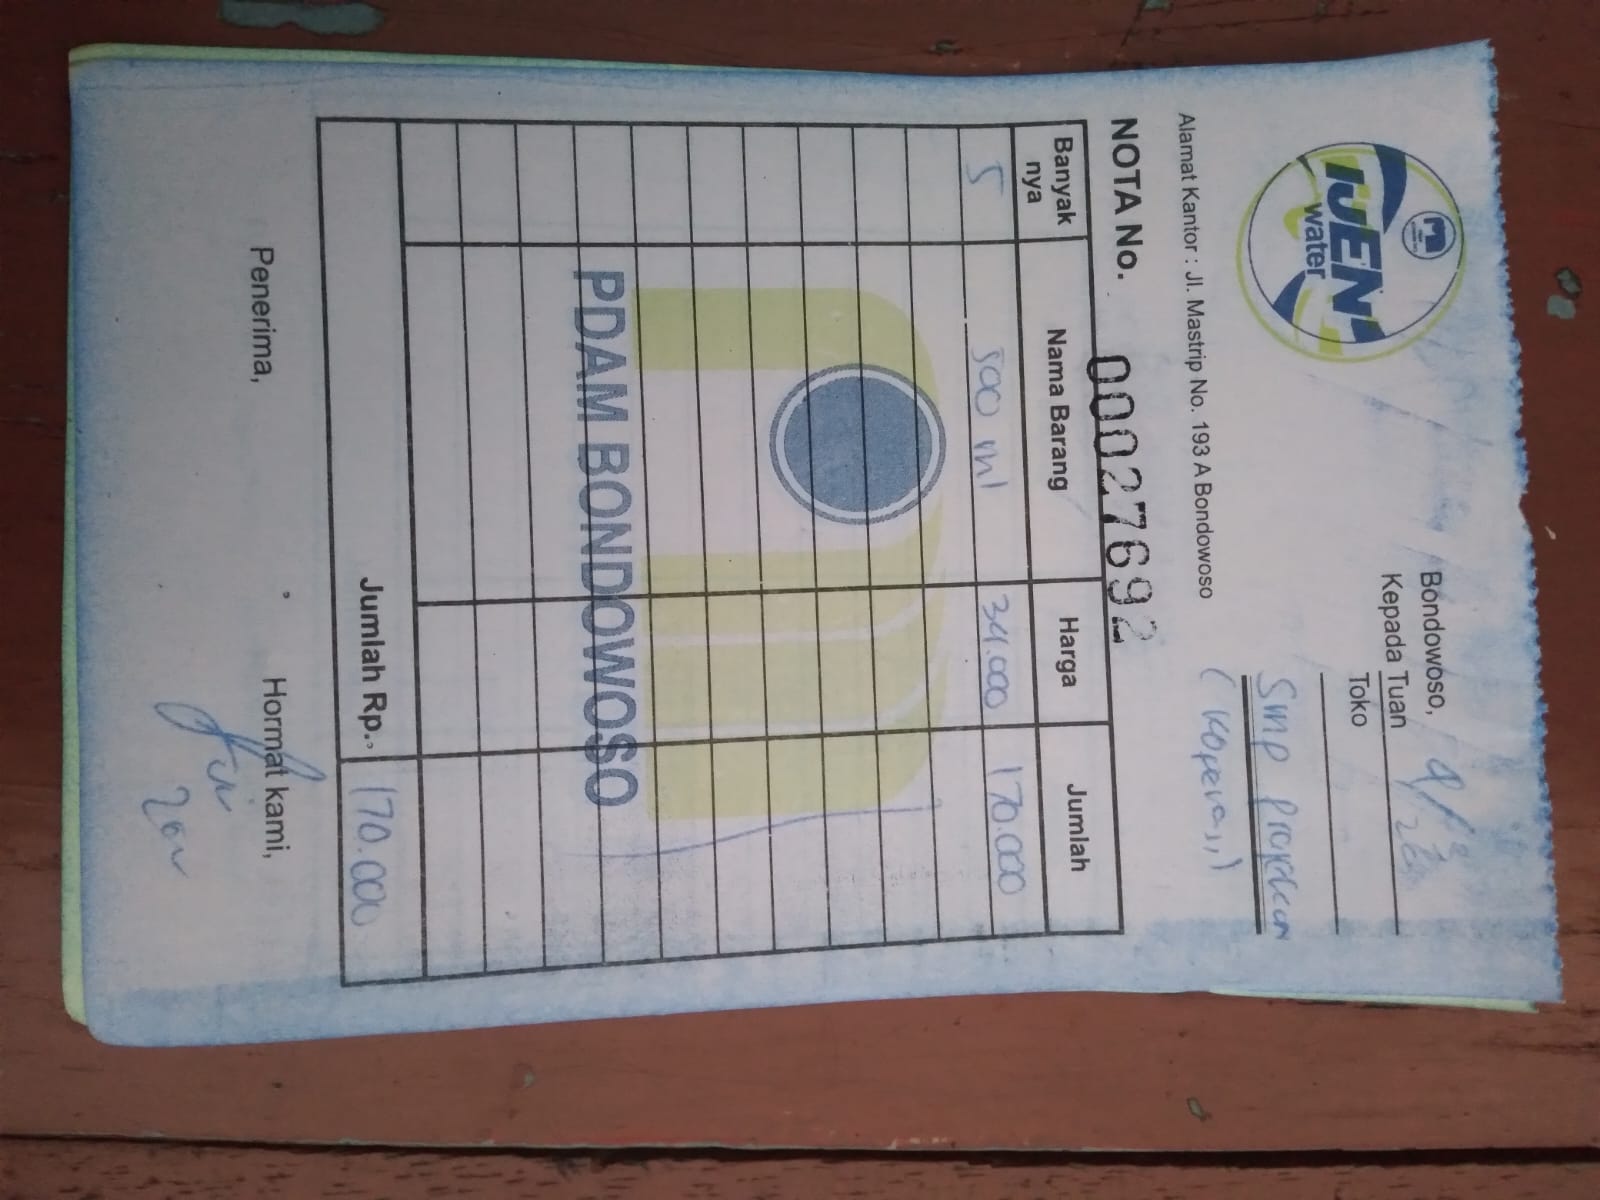 IJEN
water
Bondowoso,
Kepada Tuan
Toko
Smp Prajekan
(Koperasi)
Alamat Kantor : Jl. Mastrip No. 193 A Bondowoso
NOTA No. 00027692
Banyak nya Nama Barang Harga Jumlah
5 500 ml 34.000 170.000
PDAM BONDOWOSO
Jumlah Rp. 170.000
Penerima, Hormat kami,